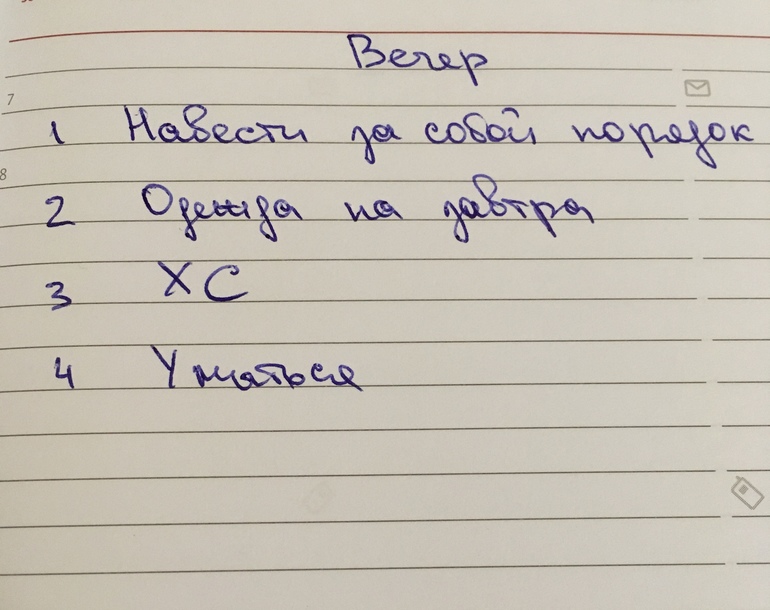 Вечер
7
1 Навести за собой порядок
8
2 Одежда на завтра
3 ХС
4